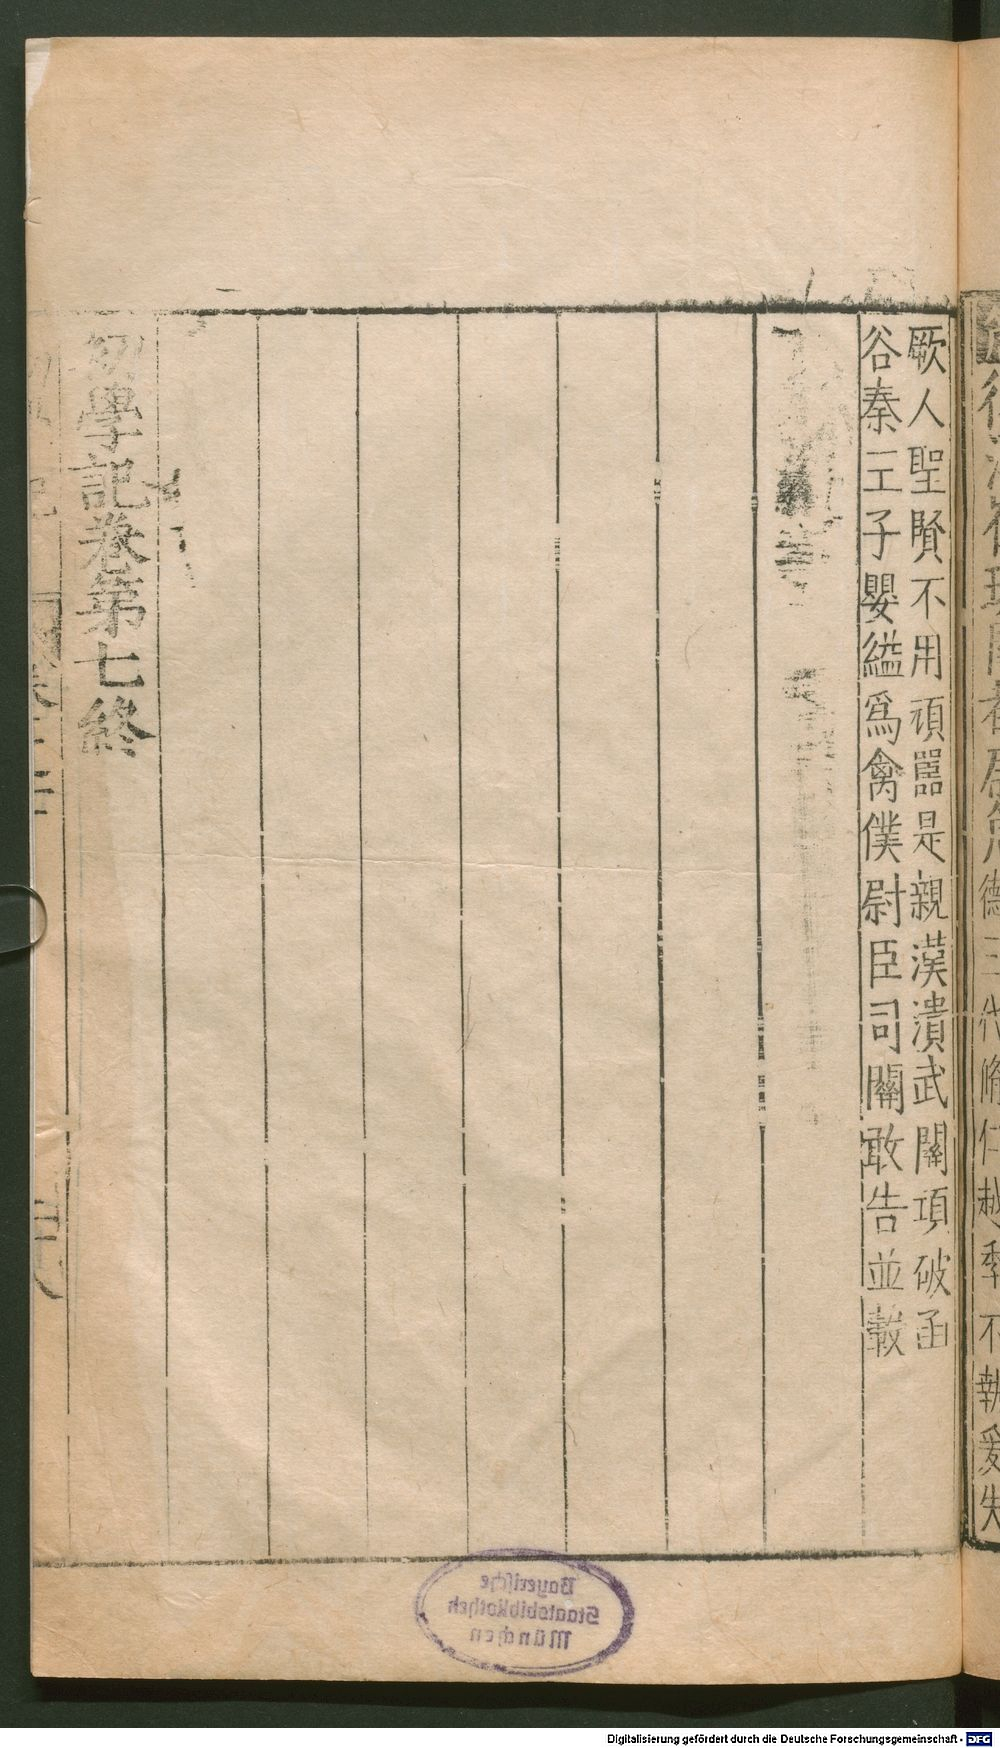 厥人聖賢不用頑嚚是親漢潰武關項破函
谷秦王子嬰縊爲禽僕尉臣司關敢告並轂
初學記卷第七終
德三代脩仁越季不執爰失
Bayerische
Staatsbibliothek
München
Digitalisierung gefördert durch die Deutsche Forschungsgemeinschaft - DFG